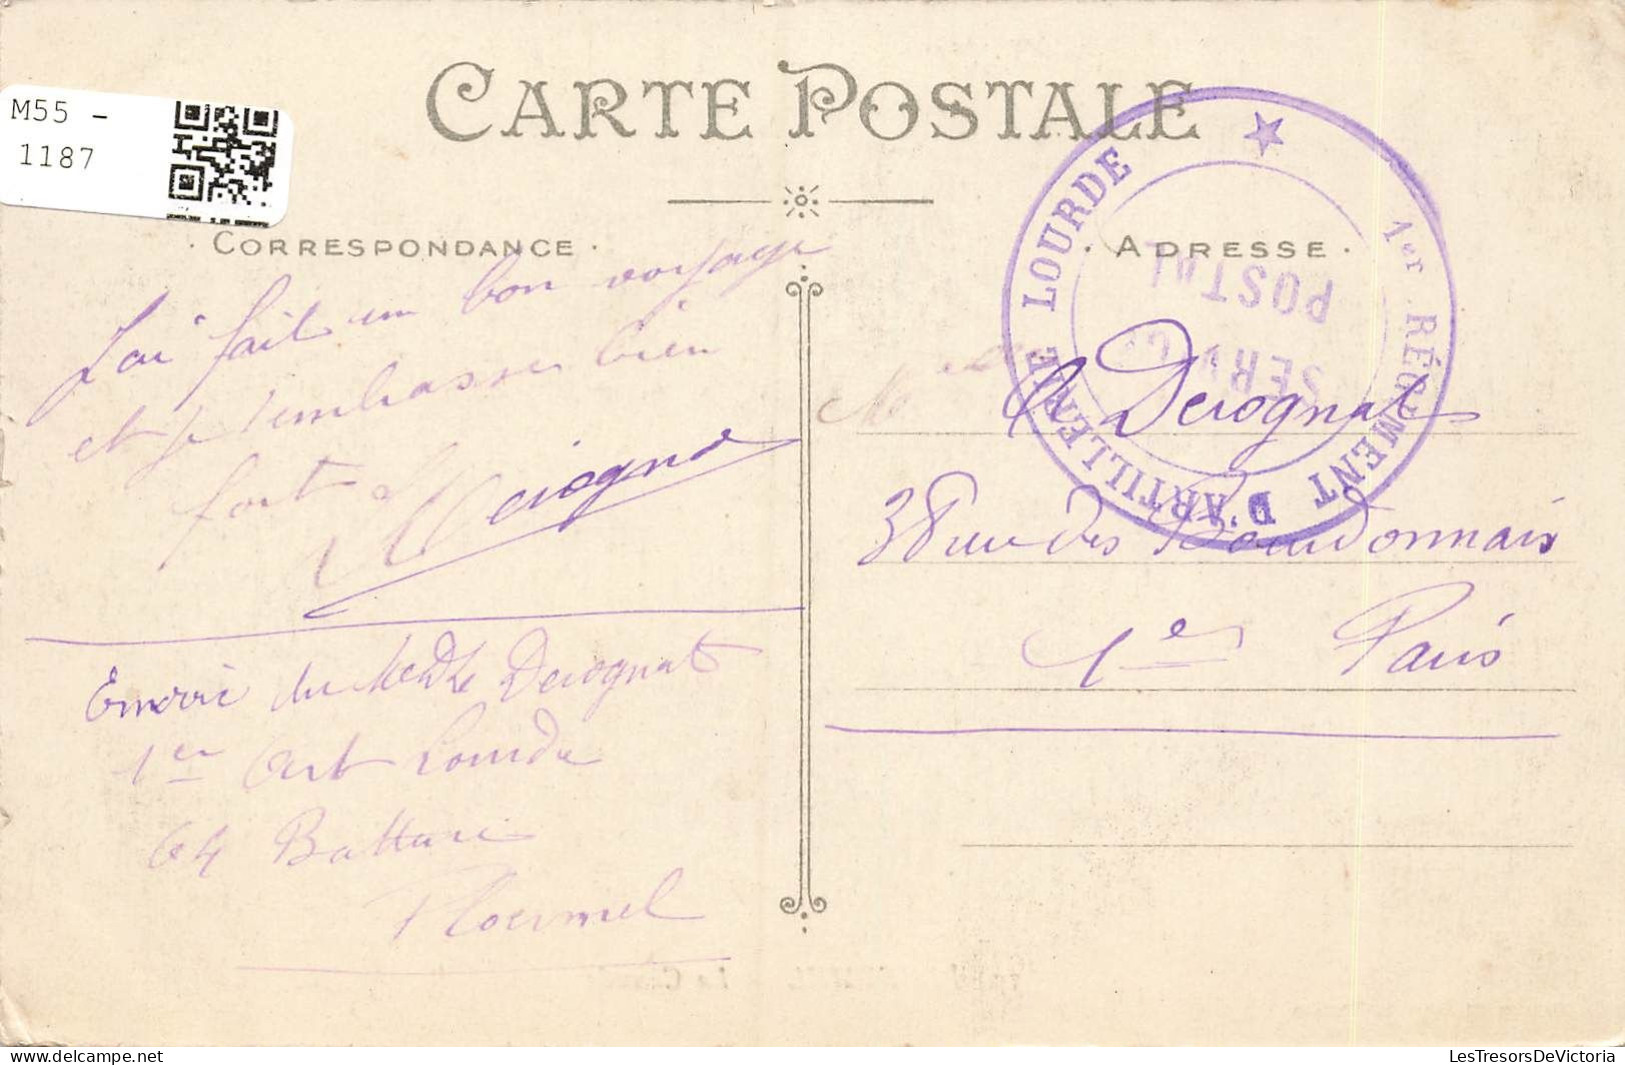 M55 -
1187
CARTE POSTALE
· CORRESPONDANCE ·
J'ai fait un bon voyage
et je t'embrasse bien
fort
Derognat
Envoie du Derognat
1er Art Lourde
64 Batterie
Ploermel
· ADRESSE ·
1er RÉGIMENT D'ARTILLERIE LOURDE
SERVICE
POSTAL
Melle Derognat
38 rue des Bourdonnais
1e Paris
LesTresorsDeVictoria